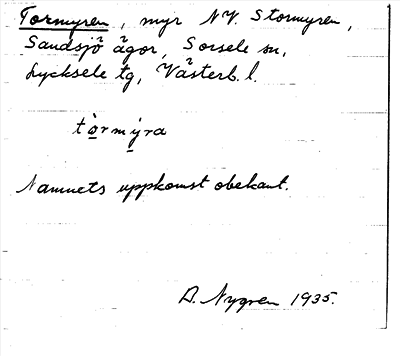 Tormyren, myr NV. Stormyren,
Sandsjö ägor, Sorsele sn,
Lycksele tg, Västerb. l.
tòrmýra
Namnets uppkomst obekant.
D. Nygren 1935.